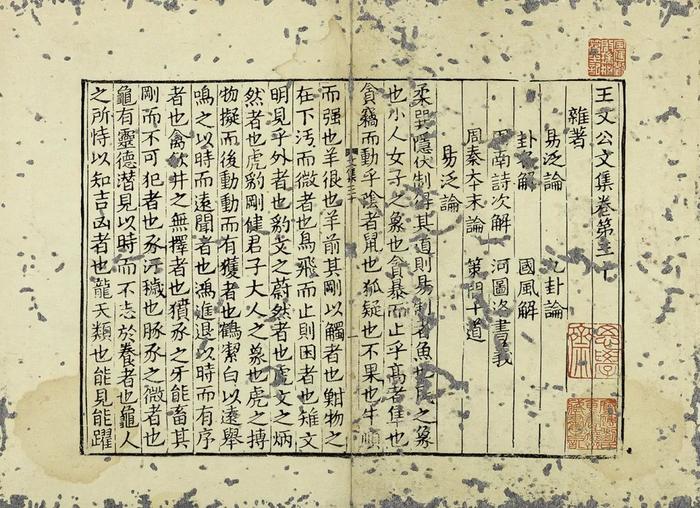 王文公文集卷第三十
雜著
易泛論 九卦論
卦名解 國風解
周南詩次解 河圖洛書義
周秦本末論 策問十道
易泛論
柔巽隱伏制得其道則易制者魚也民之象
也小人女子之象也貪暴而止乎高者隼也
貪竊而動乎陰者鼠也狐疑也不果也牛順
而强也羊很也羊前其剛以觸者也鮒物之
在下汚而微者也鳥飛而止則困者也雉文
明見乎外者也豹文之蔚然者也虎文之炳
然者也虎豹剛健君子大人之象也虎之搏
物擬而後動動而有獲者也鶴潔白以遠舉
鳴之以時而遠聞者也鴻進退以時而有序
者也禽井之無擇者也豶豕之牙能畜其
剛而不可犯者也豕汚穢也豚豕之微者也
龜有靈德潛見以時而不志於養者也龜人
之所恃以知吉凶者也龍天類也能見能躍